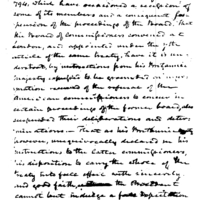 794, which have occasioned a secession of
some of its members and a consequent sus-
pension of the proceedings of the Board, that
the Board of Commissioners convened at
London, and appointed under the
article of the same treaty, have, it is un-
derstood, by instructions from his Britannic
majesty
of the refusal of the
American commissioners to concur in
certain proceedings of the former board, also
suspended their deliberations and deter-
minations. That as his Britannic
however, unequivocally declared in his
instructions to the
his disposition to carry the whole of the
treaty into full effect with sincerity
and good faith, the President
cannot but indulge a full expectation